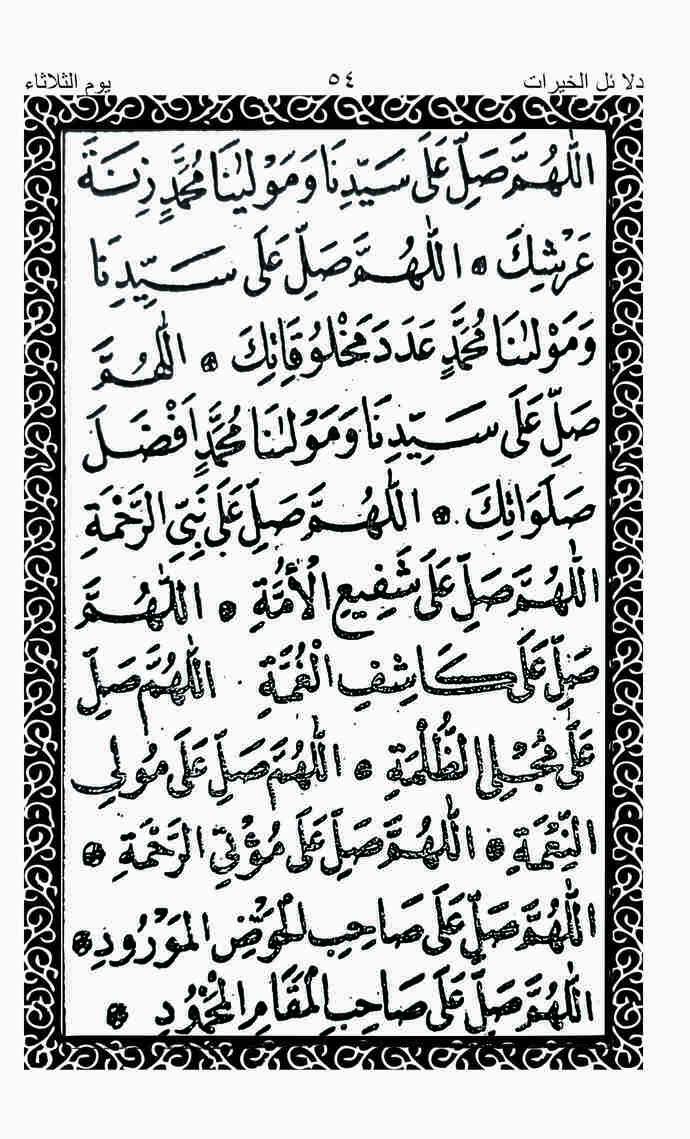 دلائل الخيرات ٥٤ يوم الثلاثاء
اَللّٰهُمَّ صَلِّ عَلَى سَيِّدِنَا وَمَوْلٰينَا مُحَمَّدٍ زِنَةَ
عَرْشِكَ ۞ اَللّٰهُمَّ صَلِّ عَلَى سَيِّدِنَا
وَمَوْلٰينَا مُحَمَّدٍ عَدَدَ مَخْلُوقَاتِكَ ۞ اَللّٰهُمَّ
صَلِّ عَلَى سَيِّدِنَا وَمَوْلٰينَا مُحَمَّدٍ اَفْضَلَ
صَلَوَاتِكَ ۞ اَللّٰهُمَّ صَلِّ عَلَى نَبِيِّ الرَّحْمَةِ
اَللّٰهُمَّ صَلِّ عَلَى شَفِيعِ الْأُمَّةِ ۞ اَللّٰهُمَّ
صَلِّ عَلَى كَاشِفِ الْغُمَّةِ اَللّٰهُمَّ صَلِّ
عَلَى مُجْلِي الظُّلْمَةِ ۞ اَللّٰهُمَّ صَلِّ عَلَى مُولِي
النِّعْمَةِ ۞ اَللّٰهُمَّ صَلِّ عَلَى مُؤْتِي الرَّحْمَةِ ۞
اَللّٰهُمَّ صَلِّ عَلَى صَاحِبِ الْحَوْضِ الْمَوْرُودِ ۞
اَللّٰهُمَّ صَلِّ عَلَى صَاحِبِ الْمَقَامِ الْمَحْمُودِ ۞